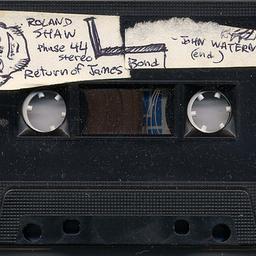 ROLAND
SHAW
Phase 44
stereo
Return of James
Bond
- JOHN WATERM
(end)